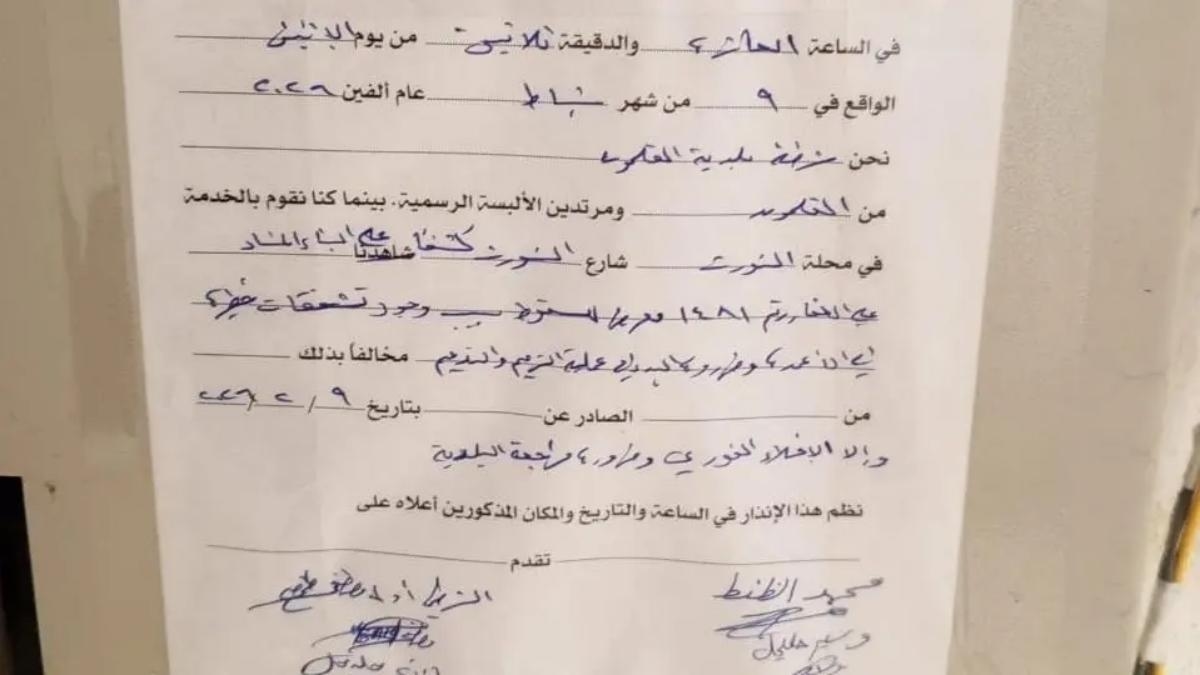 في الساعة العاشرة والدقيقة ثلاثين من يوم الاثنين
الواقع في ٩ من شهر شباط عام ألفين ٢٠٢٦
نحن شرطة بلدية القلمون
من القلمون ومرتدين الألبسة الرسمية. بينما كنا نقوم بالخدمة
في محلة شارع كشفاً شاهدنا على البناء المشاد
على العقار رقم ١٤٨١ معرض للسقوط بسبب وجود تشققات خطيرة
في الأعمدة وضرورة البدء في عملية الترميم والتدعيم مخالفاً بذلك
من الصادر عن بتاريخ ٩/٢/٢٠٢٦
وإلا الإخلاء الفوري وضرورة مراجعة البلدية
نظم هذا الإنذار في الساعة والتاريخ والمكان المذكورين أعلاه على
تقدم
محمد الظنط